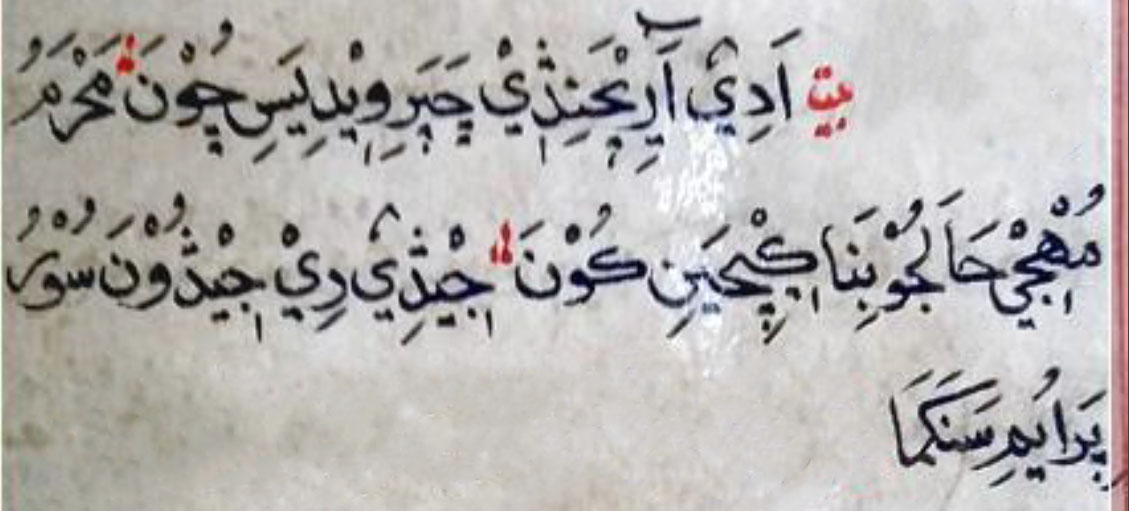 بيت اَدِيْ آرِيْچَنِڎِيْ چَپَرِ وِيْدِيَسِ چُوْنَ مَحْرَمُ
مُهْجِيْ حَالَ جُوْ بِنَا كِيْچِيَنِ كُوْنَ جِيْڎِيْ دِيْ جِيْڎُوْنَ سُوْرُ
پِرَايُمِ سَنَكَمَا